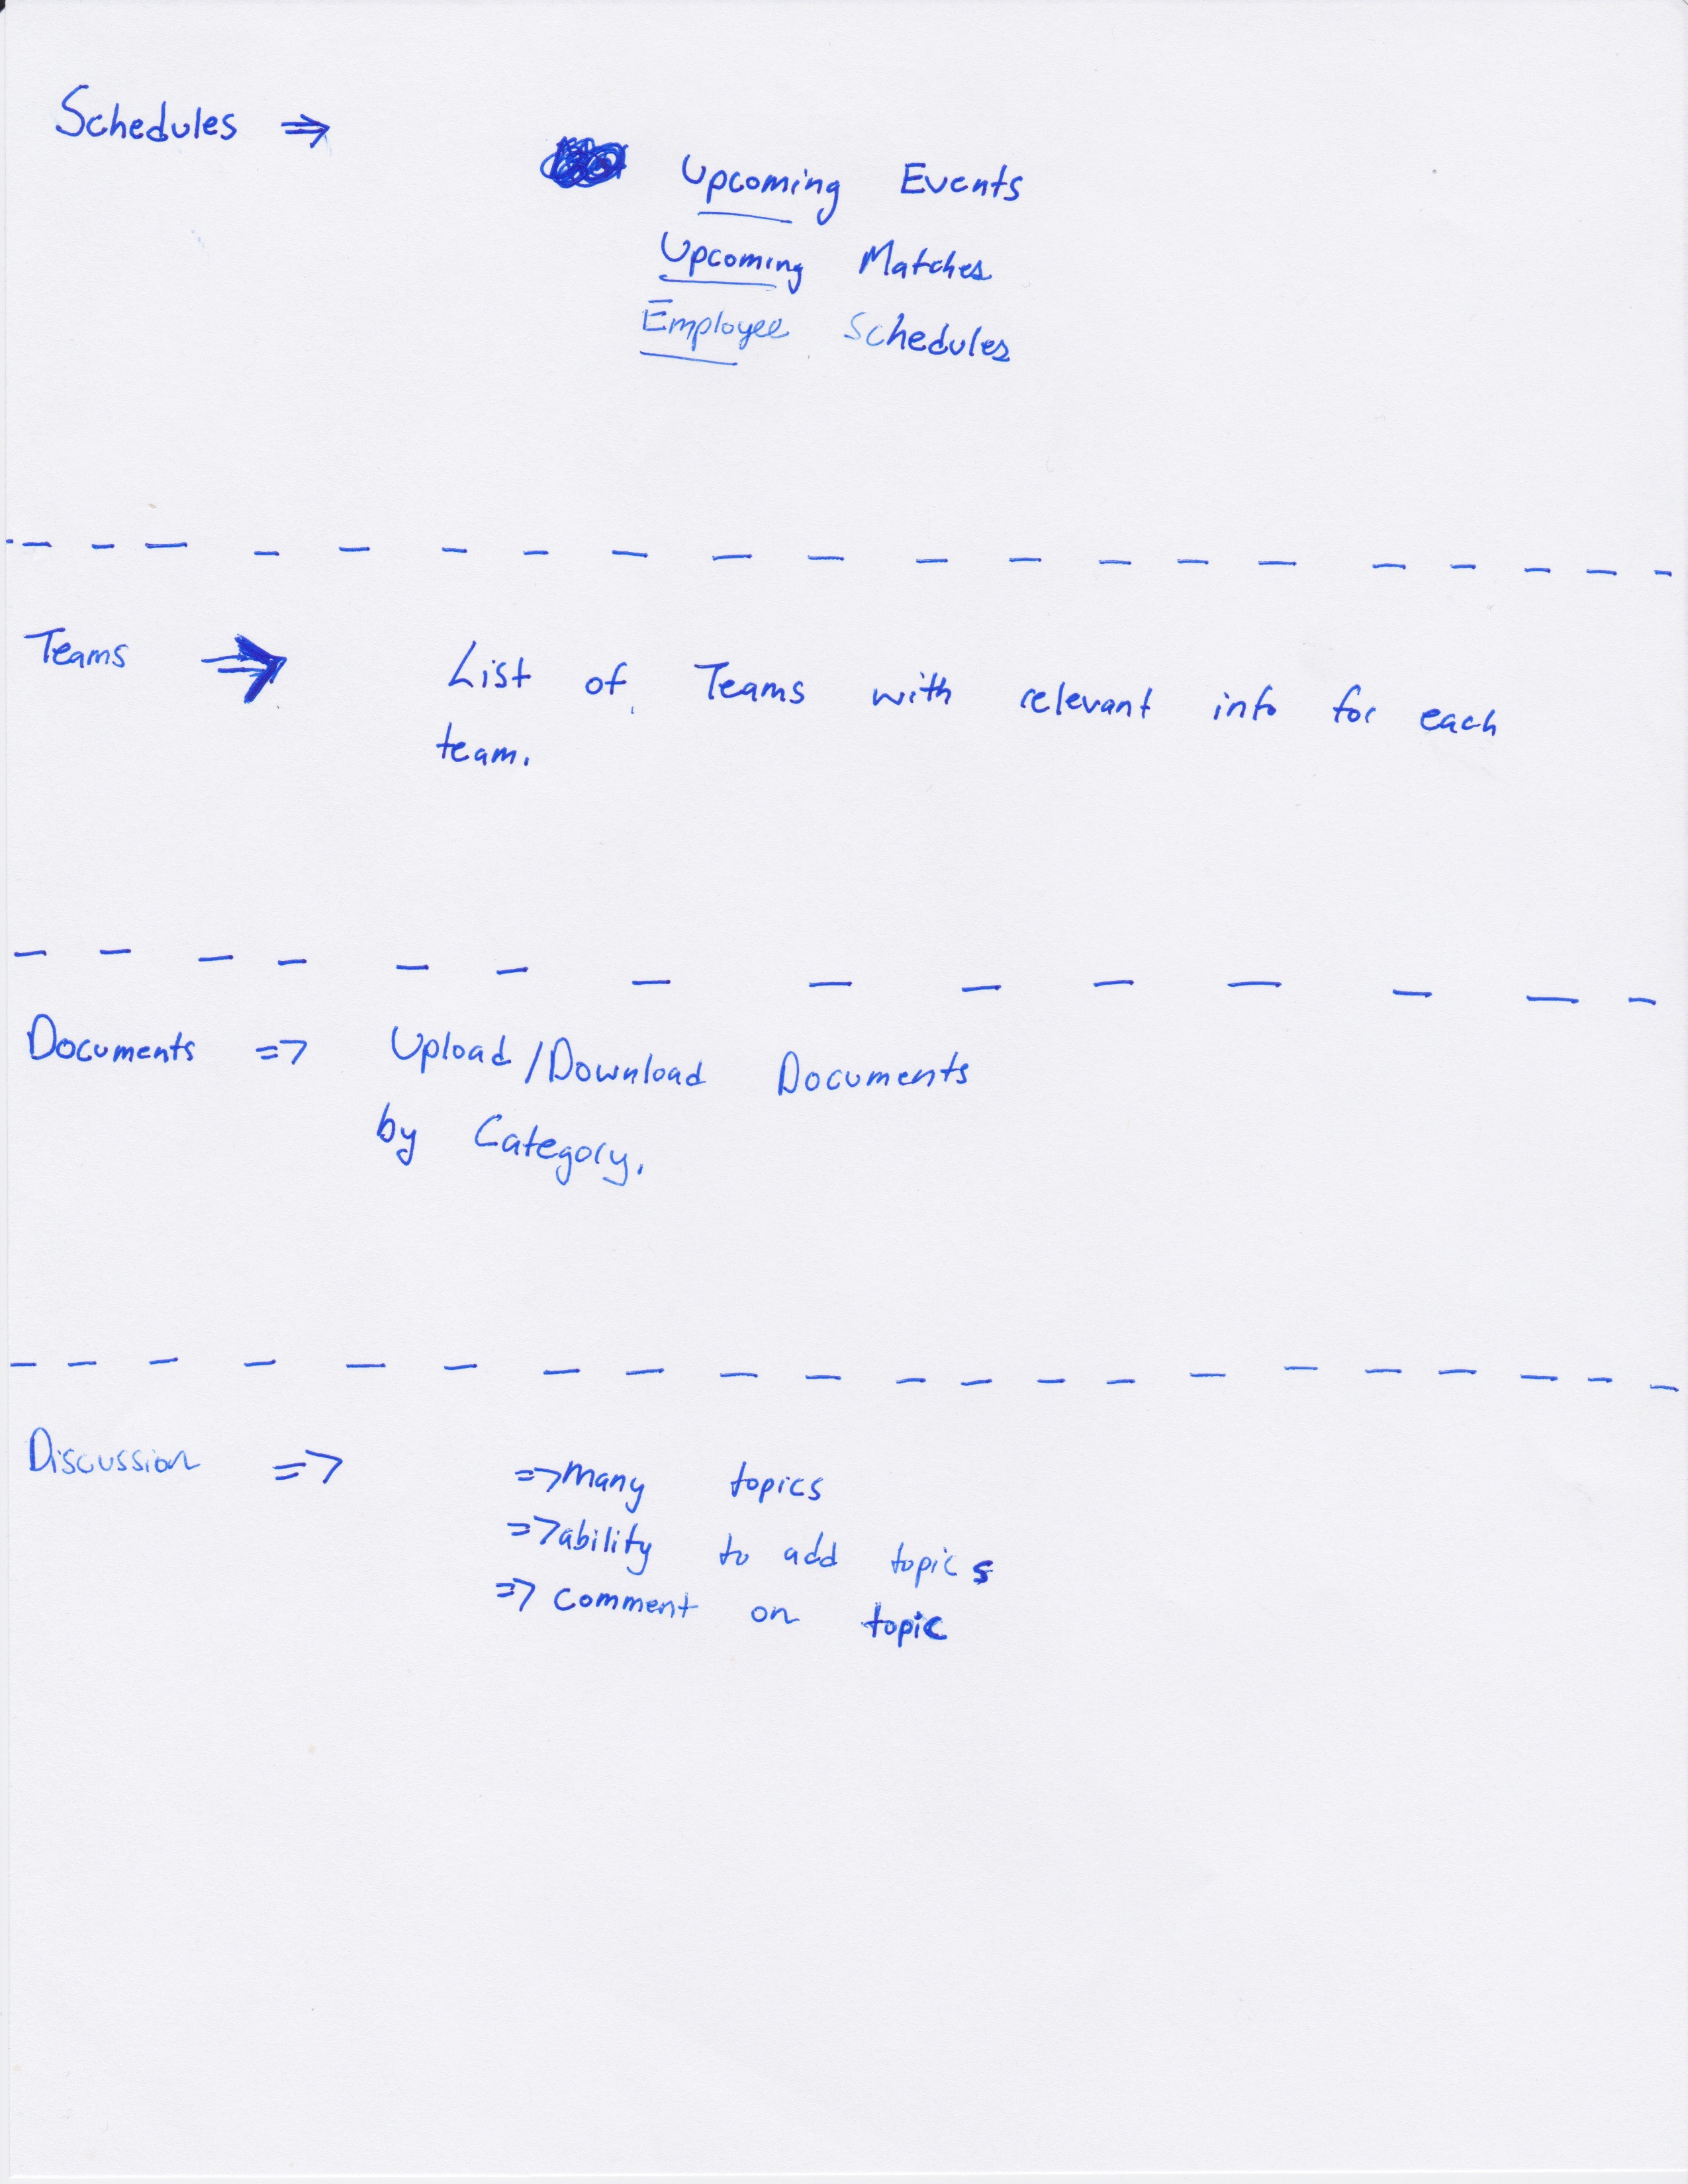 Schedules ⇒
Upcoming Events
Upcoming Matches
Employee Schedules
Teams ⇒ List of Teams with relevant info for each
team.
Documents => Upload/Download Documents
by Category.
Discussion =>
=> Many topics
=> ability to add topics
=> comment on topic